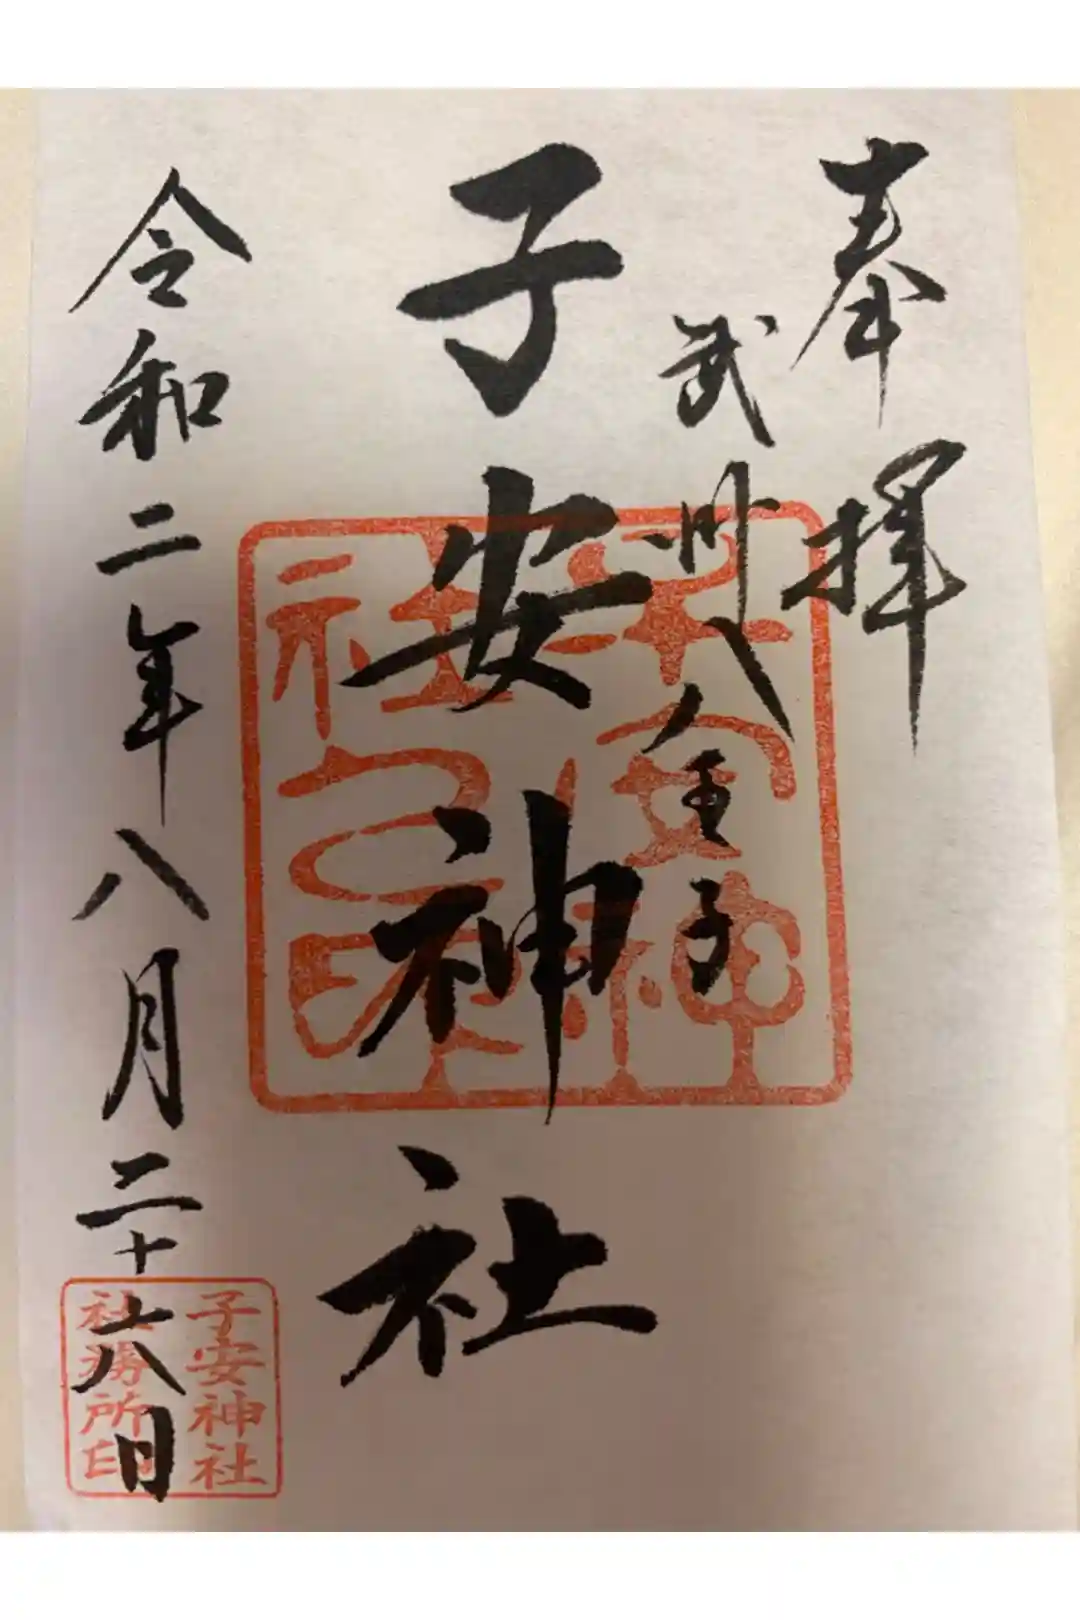 奉拝
武州八王子
子安神社
令和二年八月二十六日
子安神
社之印
子安神社
社務所印